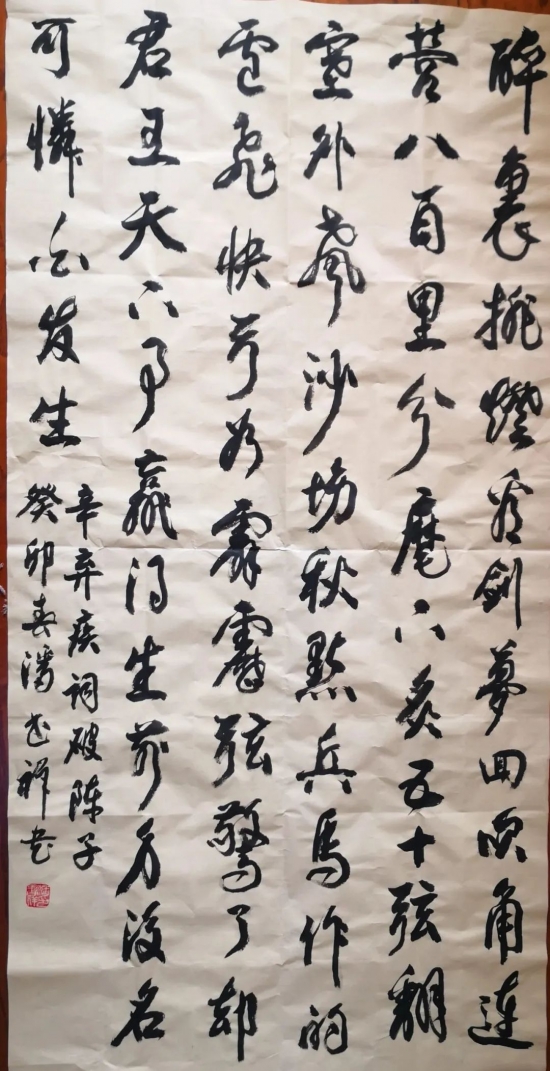 醉裏挑燈看劍夢回吹角連
营八百里分麾下炙五十弦翻
塞外聲沙場秋點兵馬作的
盧飛快弓如霹靂弦驚了却
君王天下事贏得生前身後名
可憐白发生
辛弃疾詞破陈子
癸卯春潘祥书